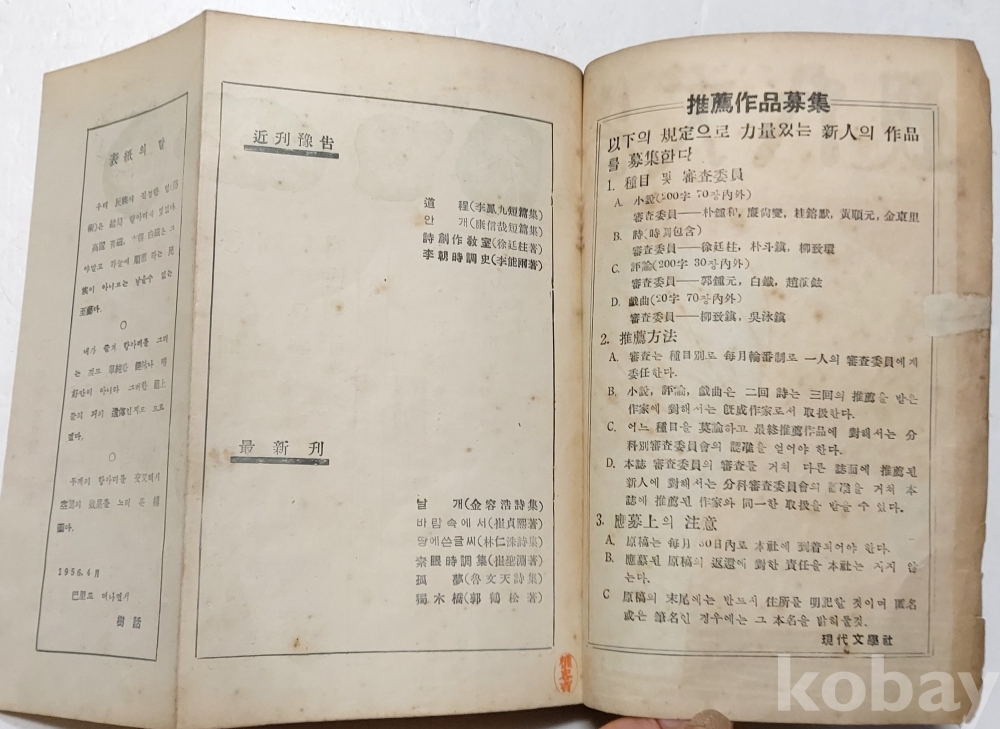 表紙의 말
우리 民族의 진정한 멋(藝
術)은 結局 항아리에 있었다.
○
내가 즐겨 항아리를 그리
○
두개의 항아리를 交叉시켜
1956.4月
巴里로 떠나면서
樹話
近刊豫告
道 程(李鳳九短篇集)
안 개(康信哉短篇集)
詩創作敎室(徐廷柱著)
李朝時調史(李能雨著)
最新刊
날 개(金容浩詩集)
바람속에서(崔貞熙著)
땅에쓴글씨(林仁洙詩集)
素眼時調集(崔聖淵著)
孤 夢(魯文天詩集)
獨木橋(郭鶴松著)
推薦作品募集
以下의 規定으로 力量있는 新人의 作品
를 募集한다
1. 種目 및 審査委員
A. 小說(200字 70장內外)
審査委員——朴鍾和, 廉尙燮, 桂鎔默, 黃順元, 金東里
B. 詩(時調包含)
審査委員——徐廷柱, 朴斗鎭, 柳致環
C. 評論(200字 30장內外)
審査委員——郭鍾元, 白鐵, 趙演鉉
D. 戱曲(20字 70장內外)
審査委員——柳致鎭, 吳泳鎭
2. 推薦方法
A. 審査는 種目別로 每月輪番制로 一人의 審査委員에게
委任한다.
B. 小說, 評論, 戱曲은 二回 詩는 三回의 推薦을 받은
作家에 對해서는 旣成作家로서 取扱한다.
C. 어느 種目을 莫論하고 最終推薦作品에 對해서는 分
科別審査委員會의 認准을 얻어야 한다.
D. 本誌 審査委員의 審査를 거쳐 다른 誌面에 推薦된
新人에 對해서는 分科審査委員會의 認准을 거쳐 本
誌에 推薦된 作家와 同一한 取扱을 받을 수 있다.
3. 應募上의 注意
A. 原稿는 每月 30日內로 本社에 到着되어야 한다.
B. 應募된 原稿의 返還에 對한 責任을 本社는 지지 않
는다.
C 原稿의 末尾에는 반드시 住所를 明記할 것이며 匿名
或은 筆名인 경우에는 그 本名을 밝히를것.
現代文學社
kobay